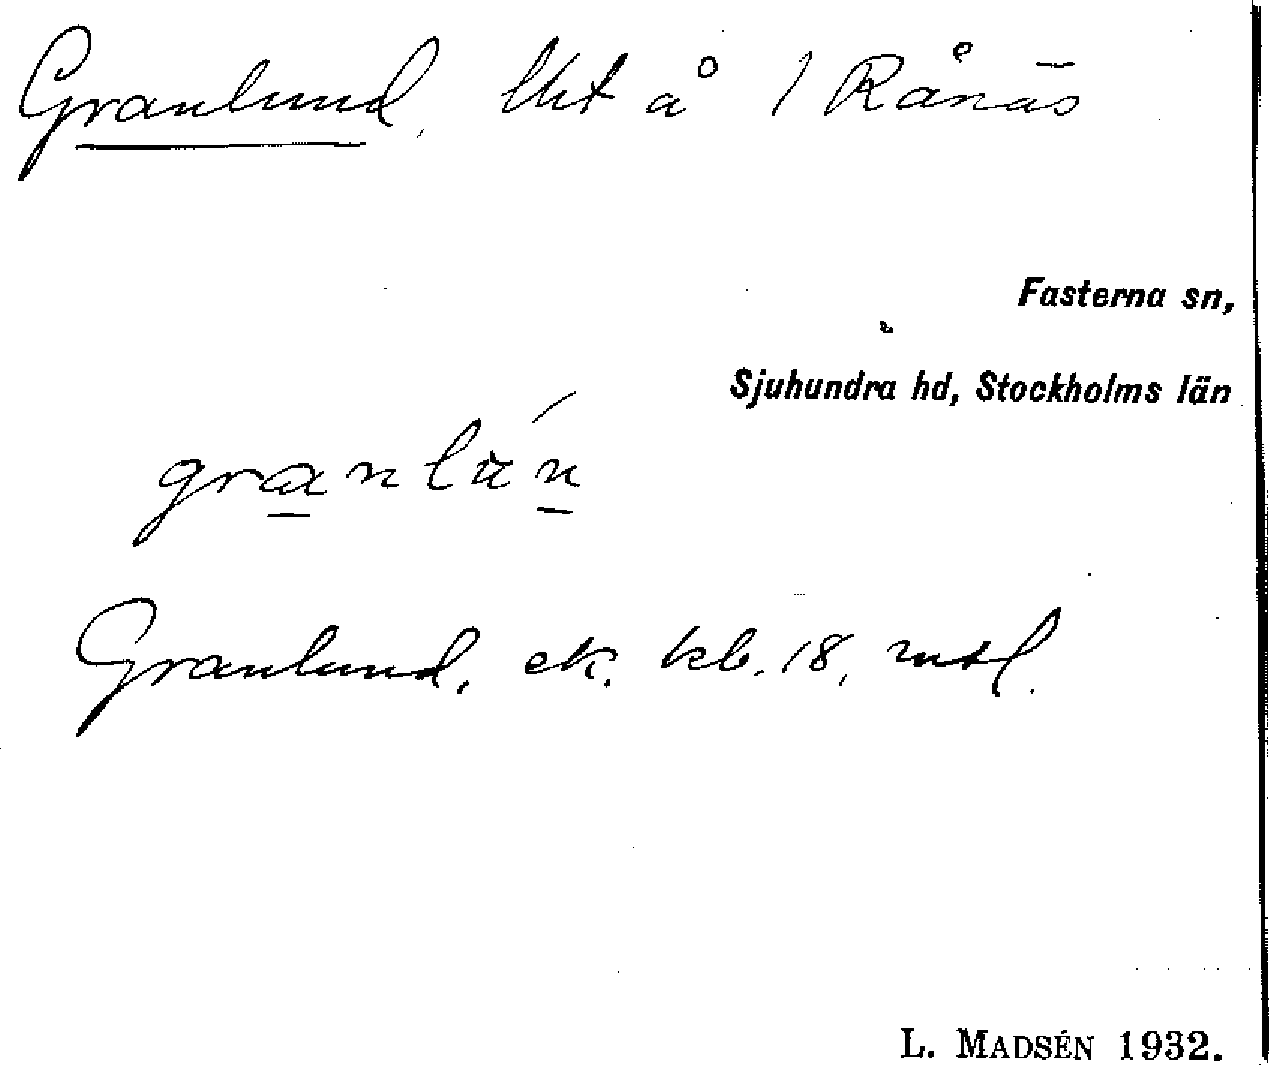 Granlund, lht å 1 Rånäs
Fasterna sn,
Sjuhundra hd, Stockholms län
granlún
Granlund, ek. kb. 18, mtl.
L. MADSÉN 1932.